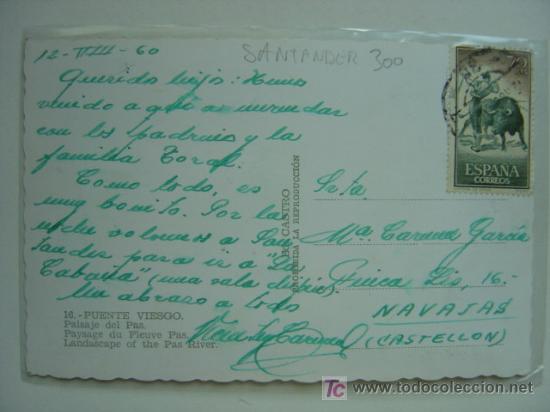 12-VIII-60
SANTANDER 300
Querido hijo: Hemos
venido a aquí a merendar
con los padrinos y la
familia Toral.
Como todo, es
muy bonito. Por la
noche volvemos a San-
tander para ir a "La
Cabaña" (una sala de
Un abrazo a todos
ESPAÑA
CORREOS
CASTRO
PROHIBIDA LA REPRODUCCIÓN
Srta
Mª Carmen García
Finca Lis, 16.-
NAVAJAS
(CASTELLON)
16.-PUENTE VIESGO.
Paisaje del Pas.
Paysage du Fleuve Pas.
Landscape of the Pas River.
todocoleccion
http://www.todocoleccion.net